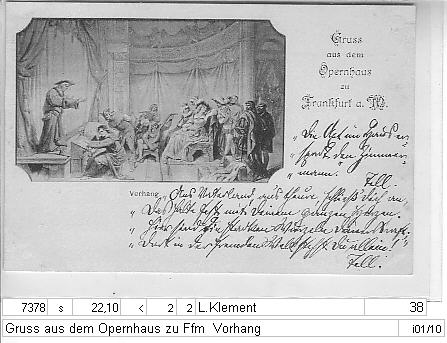 Gruss
aus dem
Opernhaus
zu
Frankfurt a. M.
"Die Axt im Haus er-
"spart den Zimmer-
"mann."
Tell.
Vorhang
"Ans Vaterland, an's theure, schließ dich an,
"Das halte fest mit Deinem ganzen Herzen.
"Hier sind die starken Wurzeln Deiner Kraft.
"Dort in der fremden Welt stehst Du allein!
Tell.
7378 s 22,10 < 2 2 L.Klement 38
Gruss aus dem Opernhaus zu Ffm Vorhang i01/10